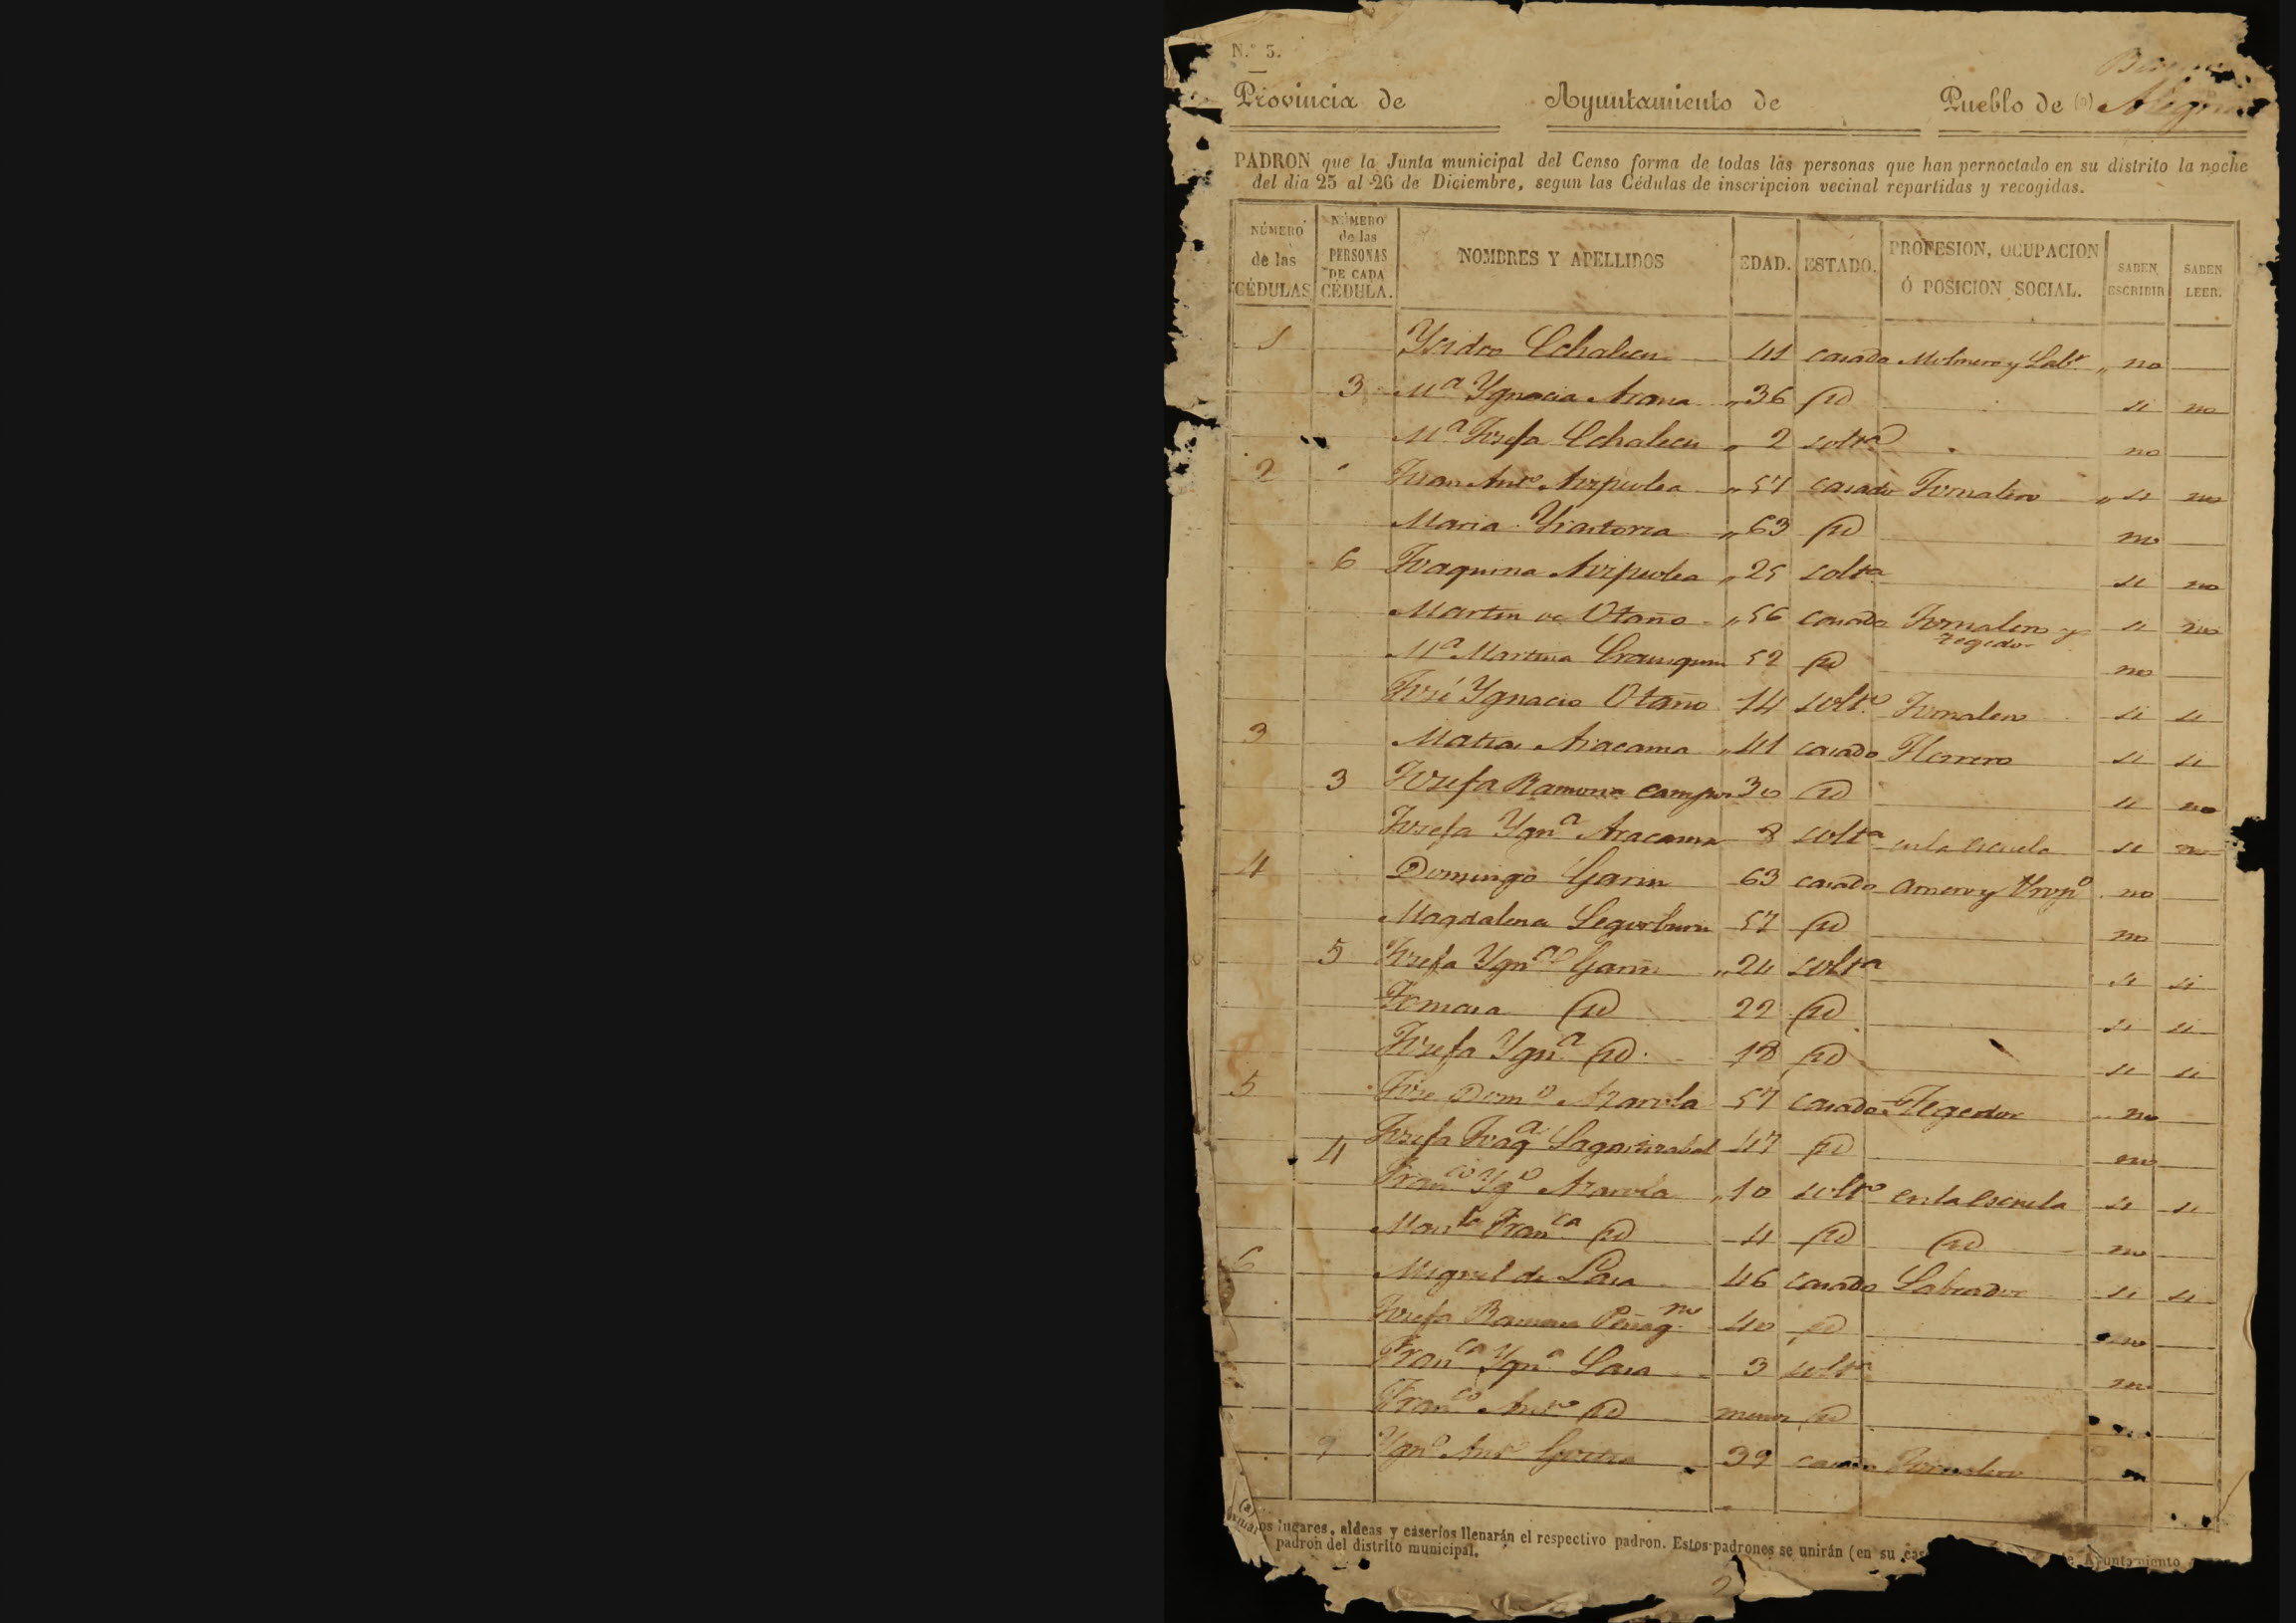 N.º 5.
Provincia de Ayuntamiento de Pueblo de (a)
PADRON que la Junta municipal del Censo forma de todas las personas que han pernoctado en su distrito la noche
del dia 25 al 26 de Diciembre, segun las Cédulas de inscripcion vecinal repartidas y recogidas.
NÚMERO de las CÉDULAS NÚMERO de las PERSONAS DE CADA CÉDULA. NOMBRES Y APELLIDOS EDAD. ESTADO. PROFESION, OCUPACION Ó POSICION SOCIAL. SABEN ESCRIBIR SABEN LEER.
1 Ysidro Echalecu 41 casado Molinero y Labr. no
3 Mª Ygnacia Arana 36 id si no
Mª Josefa Echalecu 2 soltª no
2 Juan Antº 57 casado Jornalero si no
Maria 63 id no
6 Joaquina 25 soltª si no
Martin de Otaño 56 casado Jornalero y tegedor si no
Mª Martina 52 id no
José Ygnacio Otaño 14 soltº Jornalero si si
3 Matias Aracama 41 casado Herrero si si
3 Josefa Ramona 30 id si no
Josefa Ygnª Aracama 8 soltª en la escuela si no
4 Domingo Garin 63 casado no
Magdalena Segurburu 57 id no
5 Josefa Ygnª Garin 24 soltª si si
Tomasa id 22 id si si
Josefa Ygnª id 18 id si si
5 Jose Domº Azarola 57 casado Tegedor no
4 Josefa Joaqª 47 id no
Francº Ygº Azarola 10 soltº en la escuela si si
Franca id 4 id id no
6 Miguel de Lasa 46 casado Labrador si si
Josefa Ramona 40 id no
Franca Ygnª Lasa 3 soltª no
Francº Antº id menor id
Ygnº Antº 39 casado Jornalero
(a) os lugares, aldeas y caseríos llenarán el respectivo padron. Estos padrones se unirán (en su cas Ayuntamiento
padron del distrito municipal.
2